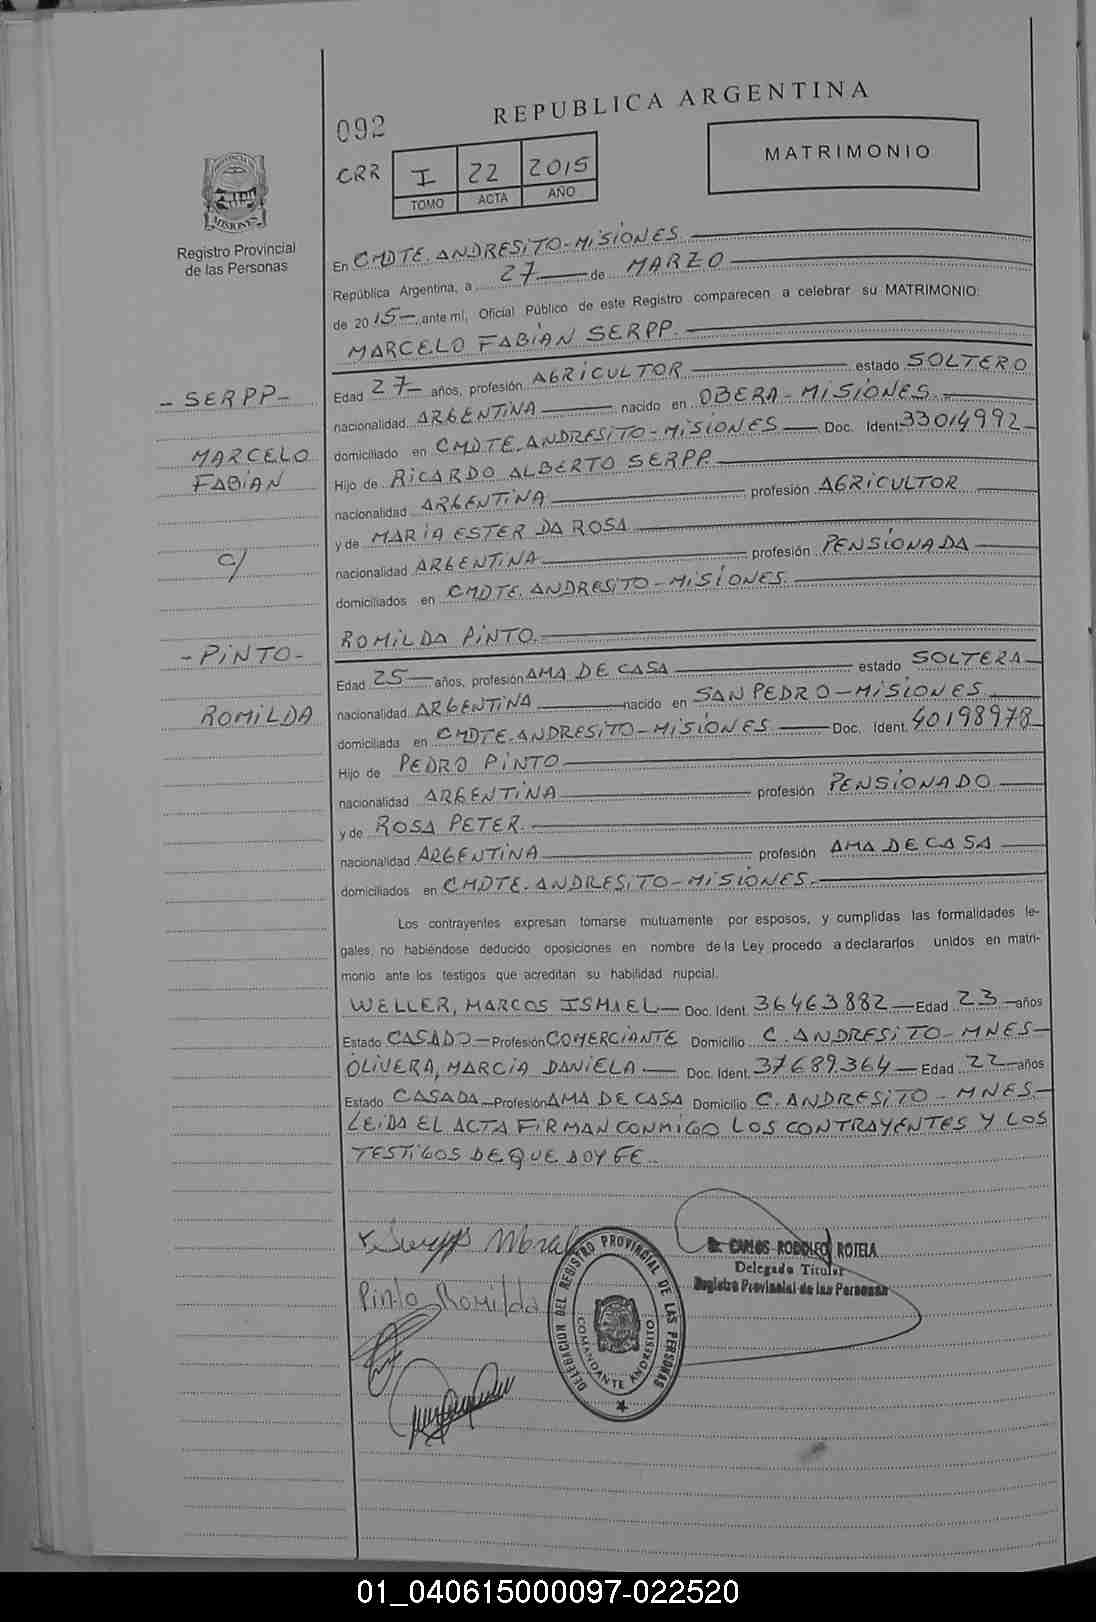 REPUBLICA ARGENTINA
092
MATRIMONIO
CRR I 22 2015
TOMO ACTA AÑO
PROVINCIA
MISIONES
Registro Provincial
de las Personas
En CMDTE. ANDRESITO - MISIONES
República Argentina, a 27 de MARZO
de 2015, ante mí, Oficial Público de este Registro comparecen a celebrar su MATRIMONIO:
MARCELO FABIÁN SERPP.
Edad 27 años, profesión AGRICULTOR estado SOLTERO
- SERPP -
nacionalidad ARGENTINA nacido en OBERA - MISIONES.
domiciliado en CMDTE. ANDRESITO - MISIONES Doc. Ident. 33014992
MARCELO
FABIÁN
Hijo de RICARDO ALBERTO SERPP.
nacionalidad ARGENTINA profesión AGRICULTOR
y de MARIA ESTER DA ROSA
C/
nacionalidad ARGENTINA profesión PENSIONADA
domiciliados en CMDTE. ANDRESITO - MISIONES.
ROMILDA PINTO.
- PINTO -
Edad 25 años, profesión AMA DE CASA estado SOLTERA
ROMILDA
nacionalidad ARGENTINA nacido en SAN PEDRO - MISIONES
domiciliada en CMDTE. ANDRESITO - MISIONES Doc. Ident. 40198978
Hijo de PEDRO PINTO
nacionalidad ARGENTINA profesión PENSIONADO
y de ROSA PETER.
nacionalidad ARGENTINA profesión AMA DE CASA
domiciliados en CMDTE. ANDRESITO - MISIONES.
Los contrayentes expresan tomarse mutuamente por esposos, y cumplidas las formalidades le-
gales, no habiéndose deducido oposiciones en nombre de la Ley procedo a declararlos unidos en matri-
monio ante los testigos que acreditan su habilidad nupcial.
WELLER, MARCOS ISMAEL Doc. Ident. 36463882 Edad 23 años
Estado CASADO Profesión COMERCIANTE Domicilio C. ANDRESITO - MNES
OLIVERA, MARCIA DANIELA Doc. Ident. 37689364 Edad 22 años
Estado CASADA Profesión AMA DE CASA Domicilio C. ANDRESITO - MNES.
LEIDA EL ACTA FIRMAN CONMIGO LOS CONTRAYENTES Y LOS
TESTIGOS DE QUE DOY FE.
Pinto Romilda
DELEGACION DEL REGISTRO PROVINCIAL DE LAS PERSONAS
COMANDANTE ANDRESITO
Dr. CARLOS RODOLFO ROTELA
Delegado Titular
Registro Provincial de las Personas
01_040615000097-022520